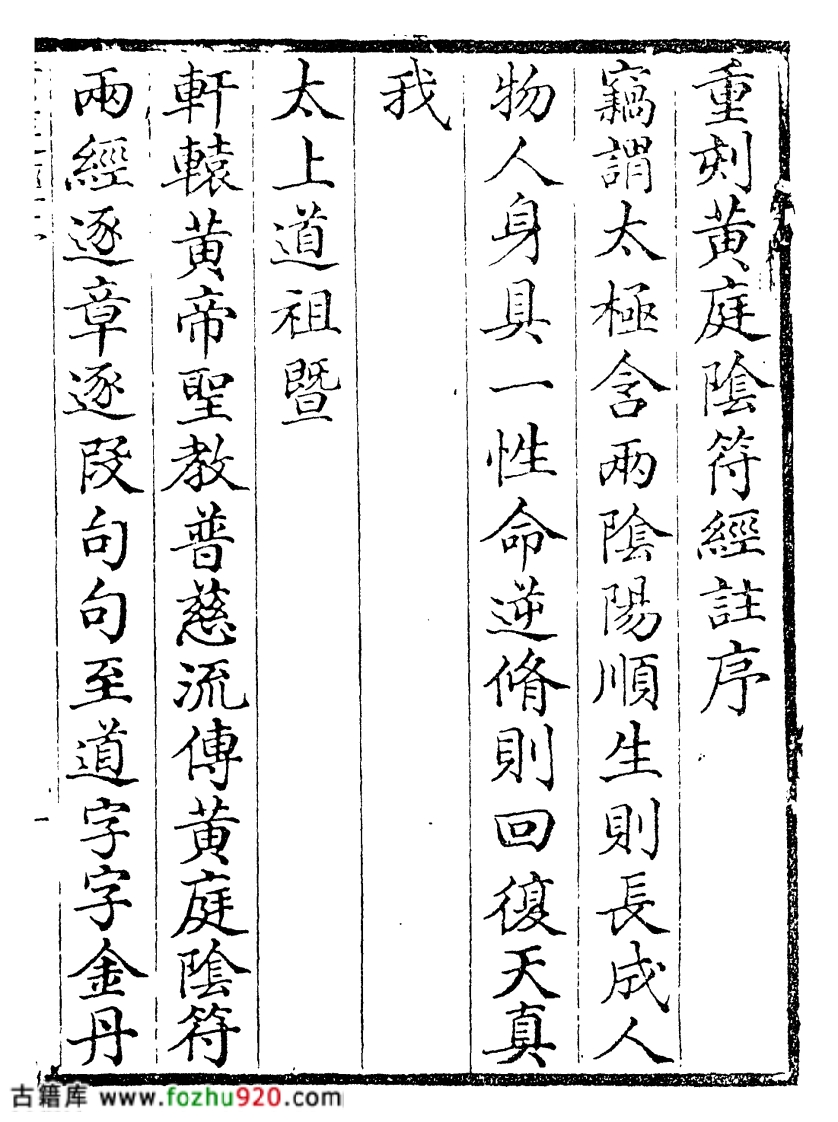 重刻黄庭陰符經註序
竊謂太極含兩陰陽順生則長成人
物人身具一性命逆脩則回復天真
我
太上道祖暨
軒轅黄帝聖教普慈流傳黄庭陰符
兩經逐章逐段句句至道字字金丹
一
古籍库 www.fozhu920.com